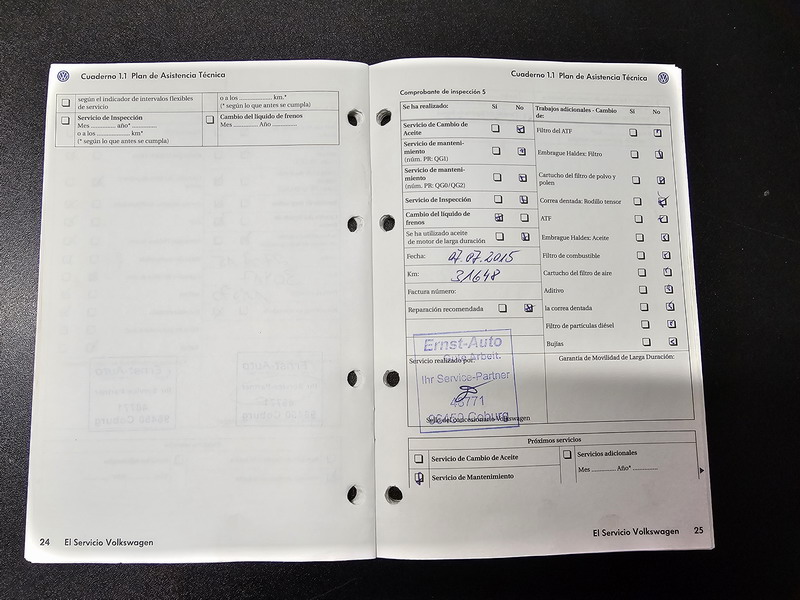 Cuaderno 1.1 Plan de Asistencia Técnica
según el indicador de intervalos flexibles
de servicio
o a los ______ km.*
(* según lo que antes se cumpla)
Servicio de Inspección
Mes ______ año* ______
o a los ______ km*
(* según lo que antes se cumpla)
Cambio del líquido de frenos
Mes ______ Año ______
24 El Servicio Volkswagen
Cuaderno 1.1 Plan de Asistencia Técnica
Comprobante de inspección 5
Se ha realizado: Sí No
Servicio de Cambio de
Aceite
Servicio de manteni-
miento
(núm. PR: QG1)
Servicio de manteni-
miento
(núm. PR: QG0/QG2)
Servicio de Inspección
Cambio del líquido de
frenos
Se ha utilizado aceite
de motor de larga duración
Fecha: 07.07.2015
Km: 31648
Factura número:
Reparación recomendada
Trabajos adicionales - Cambio
de: Sí No
Filtro del ATF
Embrague Haldex: Filtro
Cartucho del filtro de polvo y
polen
Correa dentada: Rodillo tensor
ATF
Embrague Haldex: Aceite
Filtro de combustible
Cartucho del filtro de aire
Aditivo
la correa dentada
Filtro de partículas diésel
Bujías
Servicio realizado por:
Ernst-Auto
Gute Arbeit.
Ihr Service-Partner
48771
96450 Coburg
Sello del concesionario Volkswagen
Garantía de Movilidad de Larga Duración:
Próximos servicios
Servicio de Cambio de Aceite
Servicio de Mantenimiento
Servicios adicionales
Mes ______ Año* ______
El Servicio Volkswagen 25